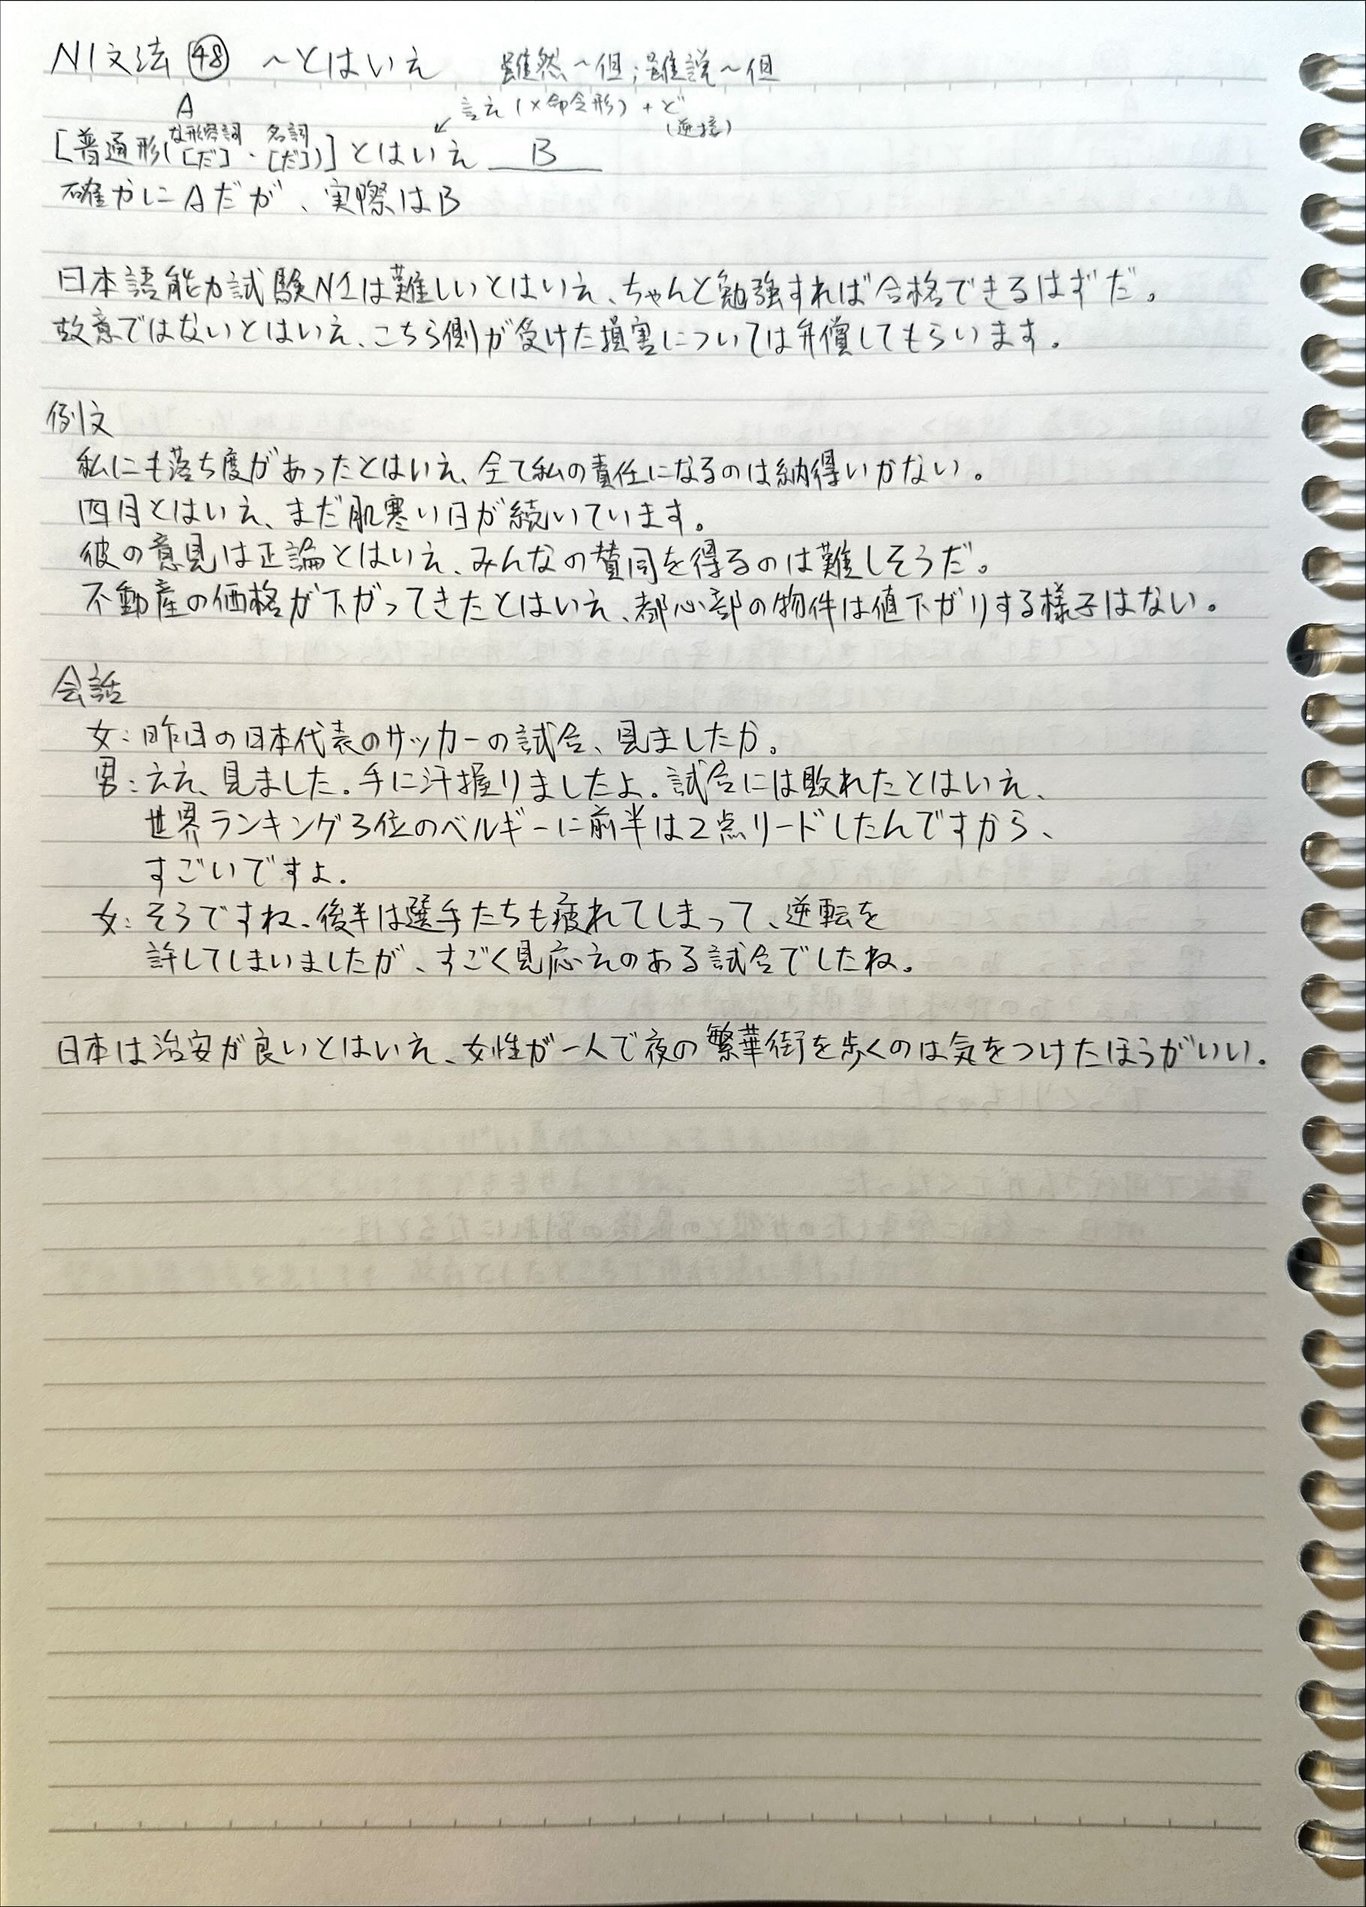 N1文法 ㊽ ～とはいえ 雖然～但；雖說～但
A
言え(×命令形)+ど
(逆接)
な形容詞 名詞
[普通形([だ]・[だ])]とはいえ B
確かにAだが、実際はB
日本語能力試験N1は難しいとはいえ、ちゃんと勉強すれば合格できるはずだ。
故意ではないとはいえ、こちら側が受けた損害については弁償してもらいます。
例文
私にも落ち度があったとはいえ、全て私の責任になるのは納得いかない。
四月とはいえ、まだ肌寒い日が続いています。
彼の意見は正論とはいえ、みんなの賛同を得るのは難しそうだ。
不動産の価格が下がってきたとはいえ、都心部の物件は値下がりする様子はない。
会話
女：昨日の日本代表のサッカーの試合、見ましたか。
男：ええ、見ました。手に汗握りましたよ。試合には敗れたとはいえ、
世界ランキング3位のベルギーに前半は2点リードしたんですから、
すごいですよ。
女：そうですね、後半は選手たちも疲れてしまって、逆転を
許してしまいましたが、すごく見応えのある試合でしたね。
日本は治安が良いとはいえ、女性が一人で夜の繁華街を歩くのは気をつけたほうがいい。